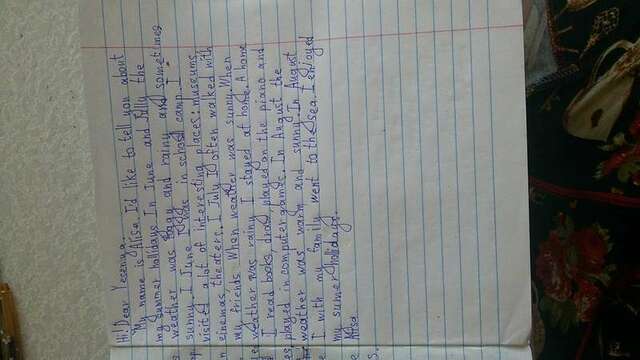 Hi! Dear Yeseniya.
My name is Alisa. I'd like to tell you about
my summer hollidays In June and Jully the
weather was foggy and rainy and sometimes
sunny. I June I was in school camp. I
visited a lot of interesting places: museums,
cinemas theaters. I July I often walked with
my friends When weather was sunny. When
weather was rainy I stayed at home. A home
I read books, draw, played on the piano and
played in computer games. In August the
weather was warm and sunny. In August
I with my family went to the sea. I enjoyed
my sumer hollidays.
Alisa